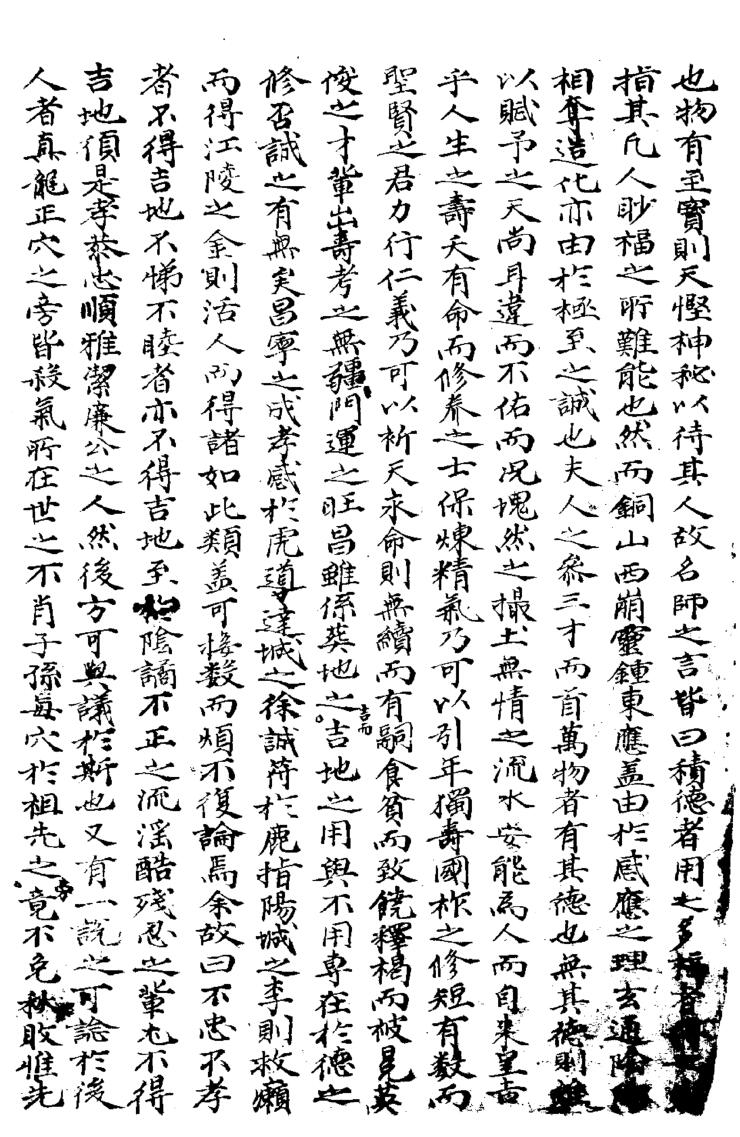 也物有至寳則天慳神秘以待其人故名師之言皆曰積德者用之多福
指其凡人眇福之所難能也然而銅山西崩靈鍾東應盖由於感應之理玄通陰
相奪造化亦由於極至之誠也夫人之叅三才而首萬物者有其德也無其德則
以賦予之天尚且違而不佑而况塊然之撮土無情之流水安能為人而自来宜吉
乎人生之壽夭有命而修养之士保煉精氣乃可以引年獨壽國祚之修短有数而
聖賢之君力行仁義乃可以祈天永命則無續而有嗣食貧而致饒釋褐而被冕英
俊之才軰出壽考之無疆門運之旺昌雖係葬地之吉而吉地之用與不用專在於德之
修否誠之有無矣昌寧之成孝感於虎導達城之徐誠符於鹿指陽城之李則救癩
而得江陵之金則活人而得諸如此類盖可接数而煩不復論焉余故曰不忠不孝
者不得吉地不悌不睦者亦不得吉地至於陰譎不正之流淫酷殘忍之軰尤不得
吉地須是孝恭忠順雅潔廉公之人然後方可與議於斯也又有一說之可諗於後
人者真龍正穴之旁皆殺氣所在世之不肖子孫每穴於祖先之旁竟不免秋敗惟先